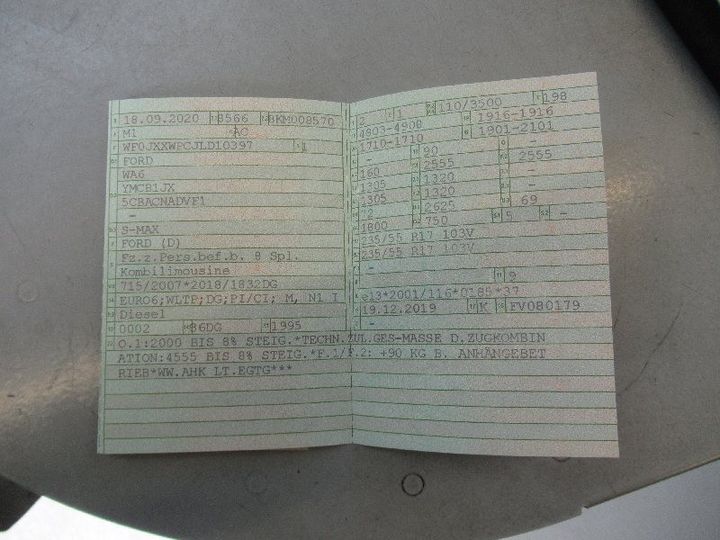 18.09.2020 8566 BKM008570
M1 AC
WF0JXXWPCJLD10397 1
FORD
WA6
YMCB1JX
5CBACNADVF1
–
S-MAX
FORD (D)
Fz.z.Pers.bef.b. 8 Spl.
Kombilimousine
715/2007*2018/1832DG
EURO6;WLTP;DG;PI/CI; M, N1 I
Diesel
0002 36DG 1995
O.1:2000 BIS 8% STEIG.*TECHN.ZUL.GES-MASSE D.ZUGKOMBIN
ATION:4555 BIS 8% STEIG.*F.1/F.2: +90 KG B. ANHÄNGEBET
RIEB*WW.AHK LT.EGTG***
2 1 110/3500 198
4803-4908 1916-1916
1710-1710 1801-2101
– 90 –
160 2555 2555
1305 1320 –
1305 1320 –
72 2625 69
1800 750 5 –
235/55 R17 103V
235/55 R17 103V
–
9
e13*2001/116*0185*37
19.12.2019 K FV080179
–